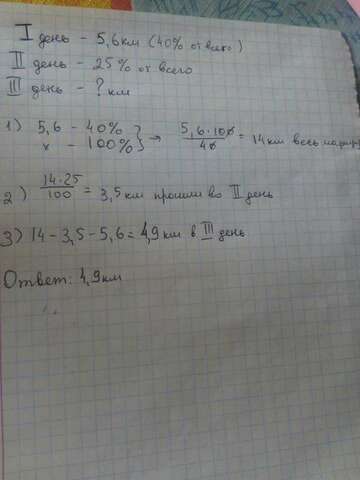 I день - 5,6км (40% от всего)
II день - 25% от всего
III день - ? км
1) 5,6 - 40% } → 5,6·100/40 = 14км весь
x - 100%
2) 14·25/100 = 3,5км прошли во II день
3) 14-3,5-5,6=4,9км в III день
Ответ: 4,9км